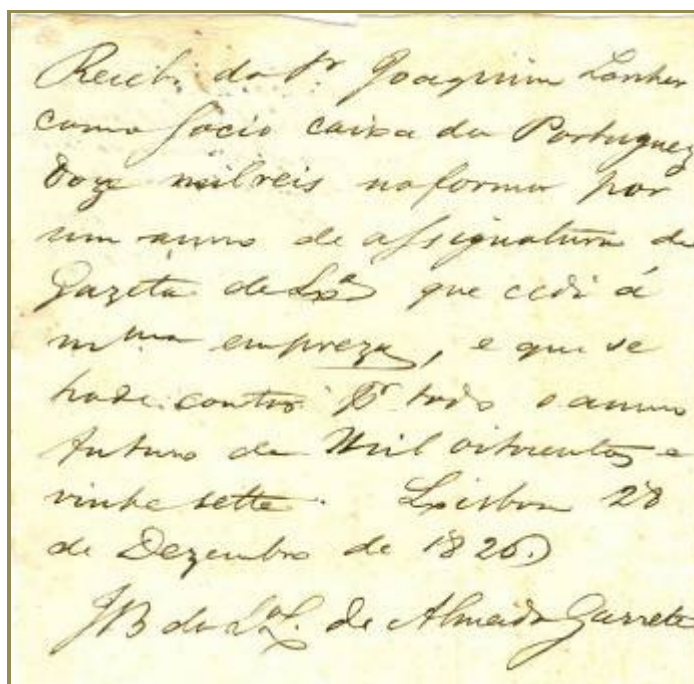 Recebi do Sr. Joaquim Larcher
como Socio caixa do Portuguez
doze mil reis na forma por
um anno de assignatura da
Gazeta de Lxa que cedi á
mma empreza, e que se
hade contar pr todo o anno
futuro de Mil oitocentos e
vinte sette. Lisboa 28
de Dezembro de 1826
JB da Sa L. de Almeida Garrett